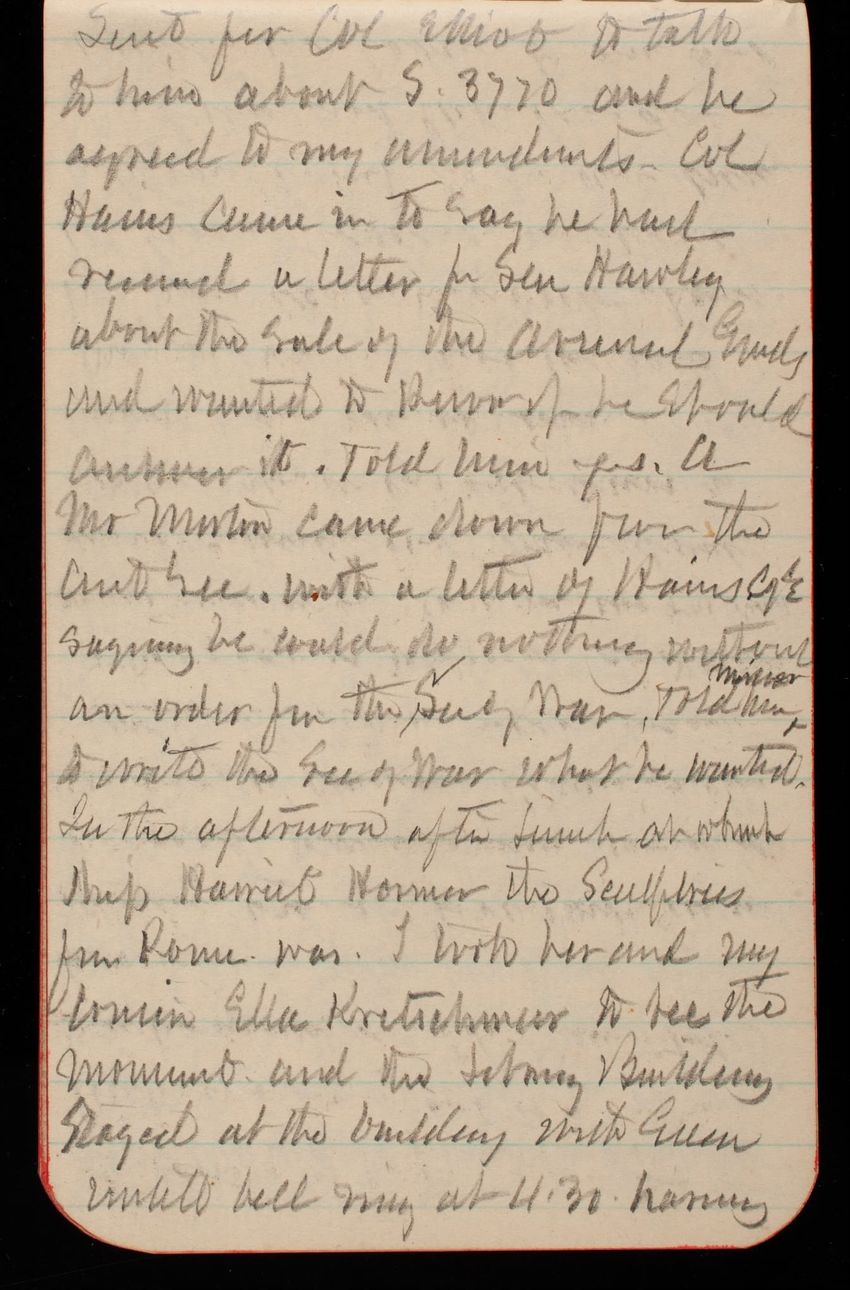 Sent for Col Elliot to talk
to him about S. 3770 and he
agreed to my amendments - Col
Hains came in to say he had
received a letter fr Sen Hawley
about the sale of the Arsenal Gnds
and wanted to know if he should
answer it. Told him yes. A
Mr came down from the
with a letter of Hains C of E
saying he could do nothing without
an order from the Sec of War, Told him
to write the Sec of War what he wanted.
In the afternoon after lunch at which
Miss Harriet Hosmer the Sculptress
from Rome was. I took her and my
cousin Ella Kretschmar to see the
Monument and the Library Building
Stayed at the building with Green
until bell ring at 4.30 having